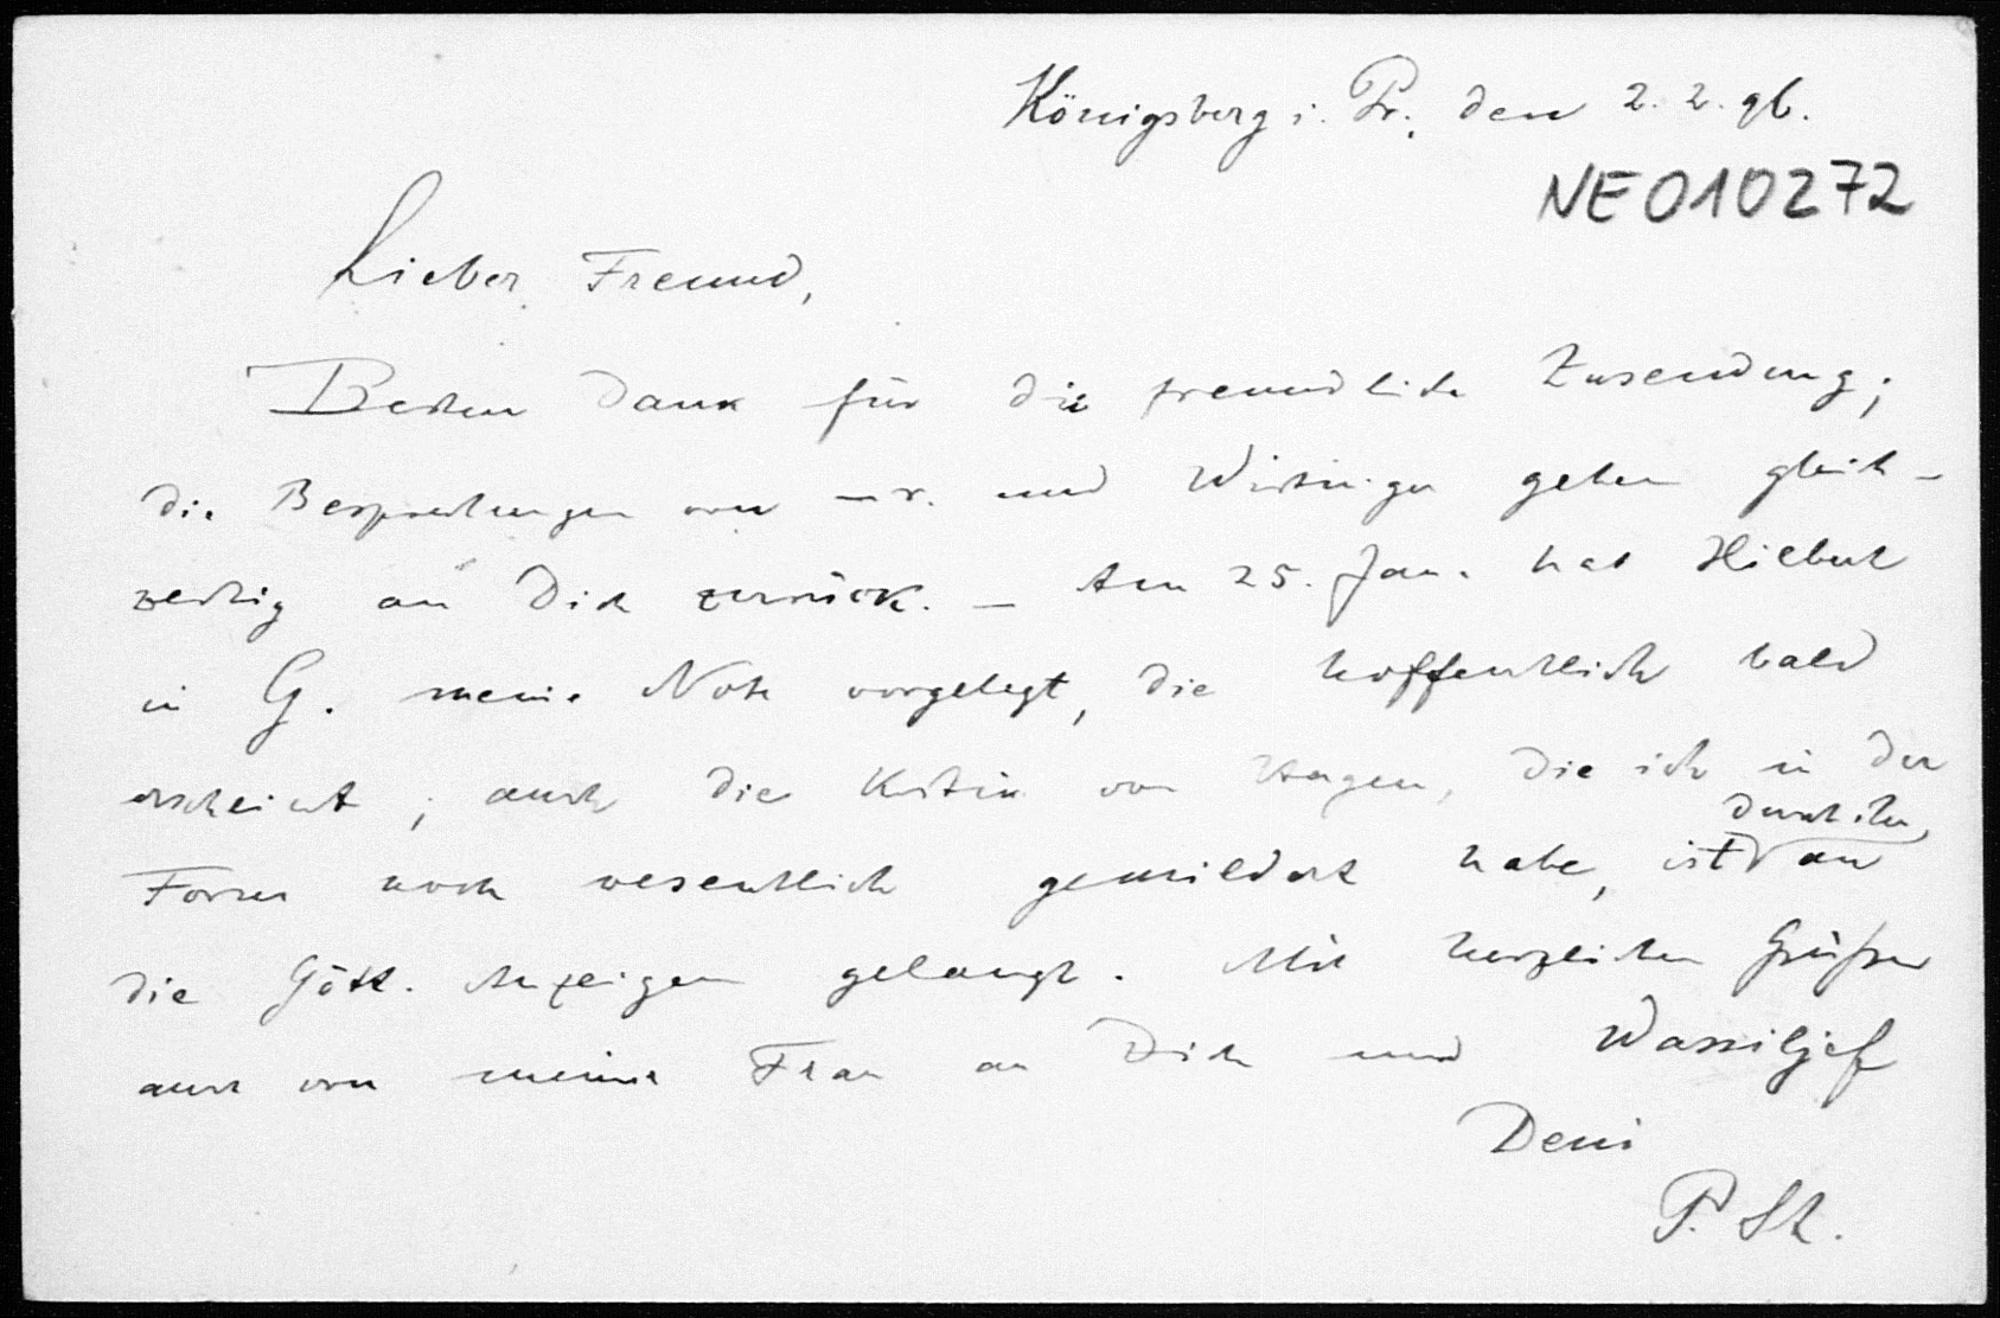 Königsberg i. Pr., den 2. 2. 96.
NE010272
Lieber Freund,
Besten Dank für die freundliche Zusendung;
die Besprechungen von und Wirtinger gehen gleich-
zeitig an Dich zurück. – Am 25. Jan. hat Hilbert
in G. meine Note vorgelegt, die hoffentlich bald
erscheint; auch die Kritik von Hagen, die ich in der
Form noch wesentlich gemildert habe, ist durch ihn an
die Gött. Anzeigen gelangt. Mit herzlichen Grüßen
auch von meiner Frau an Dich und Wassiljef
Dein
P. St.